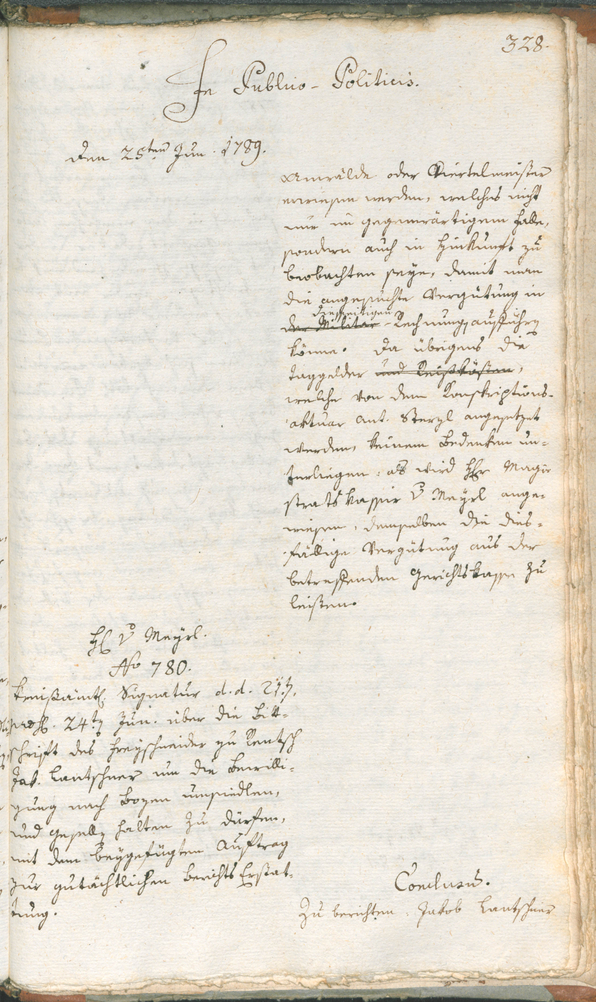 328.
In Publico-Politicis.
den 25ten Jun. 1789.
Anwälde oder Viertelmeister
erwiesen werden, welches nicht
nur im gegenwärtigem Falle,
sondern auch in Hinkunft zu
beobachten seye, damit man
die angesuchte Vergütung in
diesseitigen
der Militar-Rechnung ausführen
könne. Da übrigens die
Taggelder und Reiskösten,
welche von dem Konskriptions-
aktuar Ant. Sterzl angesetzet
werden, keinem Bedenken un-
terliegen: als wird Hhr Magi-
stratskassir v Meyrl ange-
wiesen, demselben die dies-
fällige Vergütung aus der
betreffenden Gerichtskasse zu
leisten.
H v Meyrl.
No 780.
Kreisamtl. Signatur d.d. 21t,
24t Jun. über die Bitt-
schrift des Freyschneider zu Rentsch
Jak. Lantschner um die Bewilli-
gung nach Bozen umsiedlen,
und Gesellen halten zu dürfen,
mit dem beygefügten Auftrag
zur gutächtlichen Berichts Erstat-
tung.
Conclusum.
Zu berichten, Jakob Lantschner